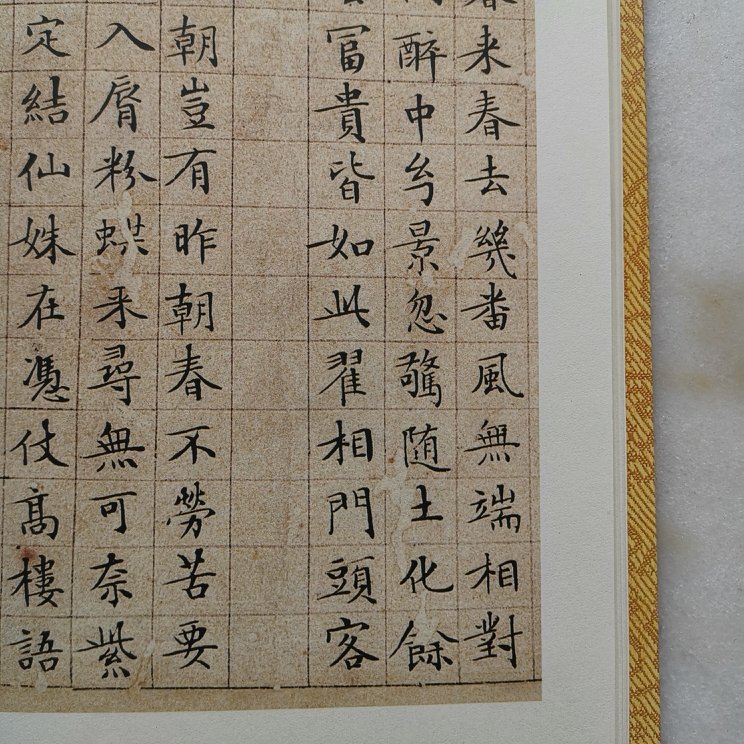 春来春去幾番風無端相對
醉中景忽驚随土化餘
冨貴皆如此翟相門頭客
朝豈有昨朝春不勞苦要
入脣粉蝶来尋無可奈紫
定結仙姝在憑仗髙樓語